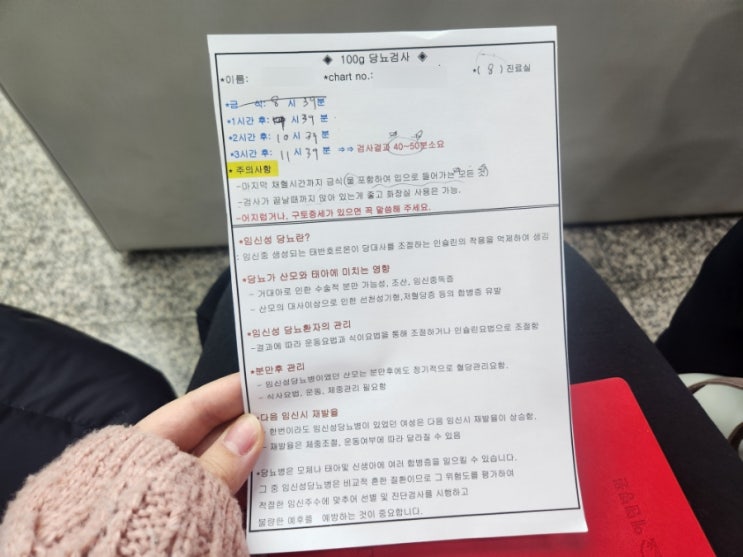 ◈ 100g 당뇨검사 ◈
*이름: *chart no.: *( 8 ) 진료실
*금 식: 8 시 39 분
*1시간 후: 9 시 39 분
*2시간 후: 10 시 39 분
*3시간 후: 11 시 39 분 ⇒⇒ 검사결과 40~50분소요
* 주의사항
-마지막 채혈시간까지 금식(물 포함하여 입으로 들어가는 모든 것)
-검사가 끝날때까지 앉아 있는게 좋고 화장실 사용은 가능.
-어지럽거나, 구토증세가 있으면 꼭 말씀해 주세요.
*임신성 당뇨란?
: 임신중 생성되는 태반호르몬이 당대사를 조절하는 인슐린의 작용을 억제하여 생김
*당뇨가 산모와 태아에 미치는 영향
- 거대아로 인한 수술적 분만 가능성, 조산, 임신중독증
- 산모의 대사이상으로 인한 선천성기형,저혈당증 등의 합병증 유발
*임신성 당뇨환자의 관리
-결과에 따라 운동요법과 식이요법을 통해 조절하거나 인슐린요법으로 조절함
*분만후 관리
- 임신성당뇨병이였던 산모는 분만후에도 정기적으로 혈당관리요함.
- 식사요법, 운동, 체중관리 필요함
*다음 임신시 재발율
- 한번이라도 임신성당뇨병이 있었던 여성은 다음 임신시 재발율이 상승함.
- 재발율은 체중조절, 운동여부에 따라 달라질 수 있음
*당뇨병은 모체나 태아및 신생아에 여러 합병증을 일으킬 수 있습니다.
그 중 임신성당뇨병은 비교적 흔한 질환이므로 그 위험도를 평가하여
적정한 임신주수에 맞추어 선별 및 진단검사를 시행하고
불량한 예후를 예방하는 것이 중요합니다.